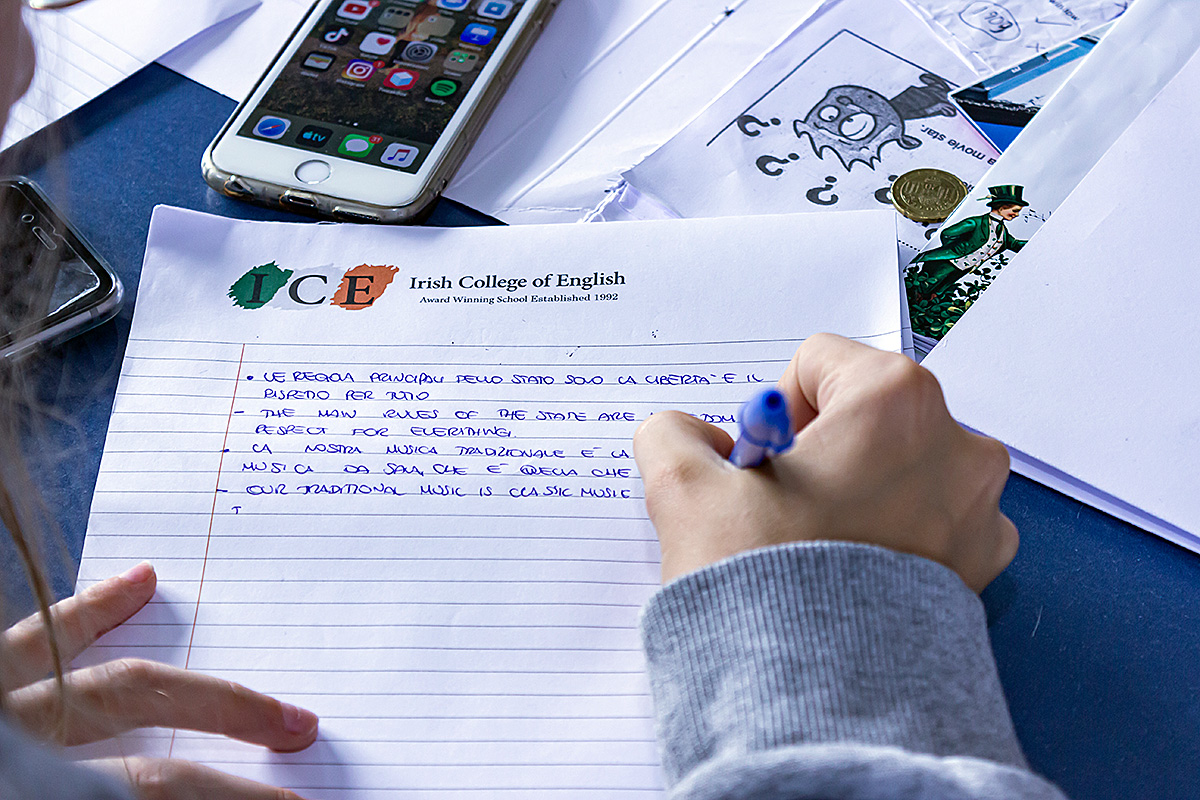 a movie star.
I C E
Irish College of English
Award Winning School Established 1992
• LE REGOLA PRINCIPALI DELLO STATO SOLO LA LIBERTA' E IL
RISPETTO PER TUTTO
- THE MAIN RULES OF THE STATE ARE
RESPECT FOR EVERITHING.
• LA NOSTRA MUSICA TRADIZIONALE E' LA
MUSICA DA SALA, CHE E' QUELLA CHE
- OUR TRADITIONAL MUSIC IS CLASSIC MUSIC